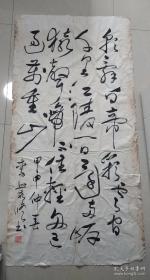 朝辞白帝彩云间
千里江陵一日还两岸
猿聲啼不住轻舟已
过萬重山 甲申仲春